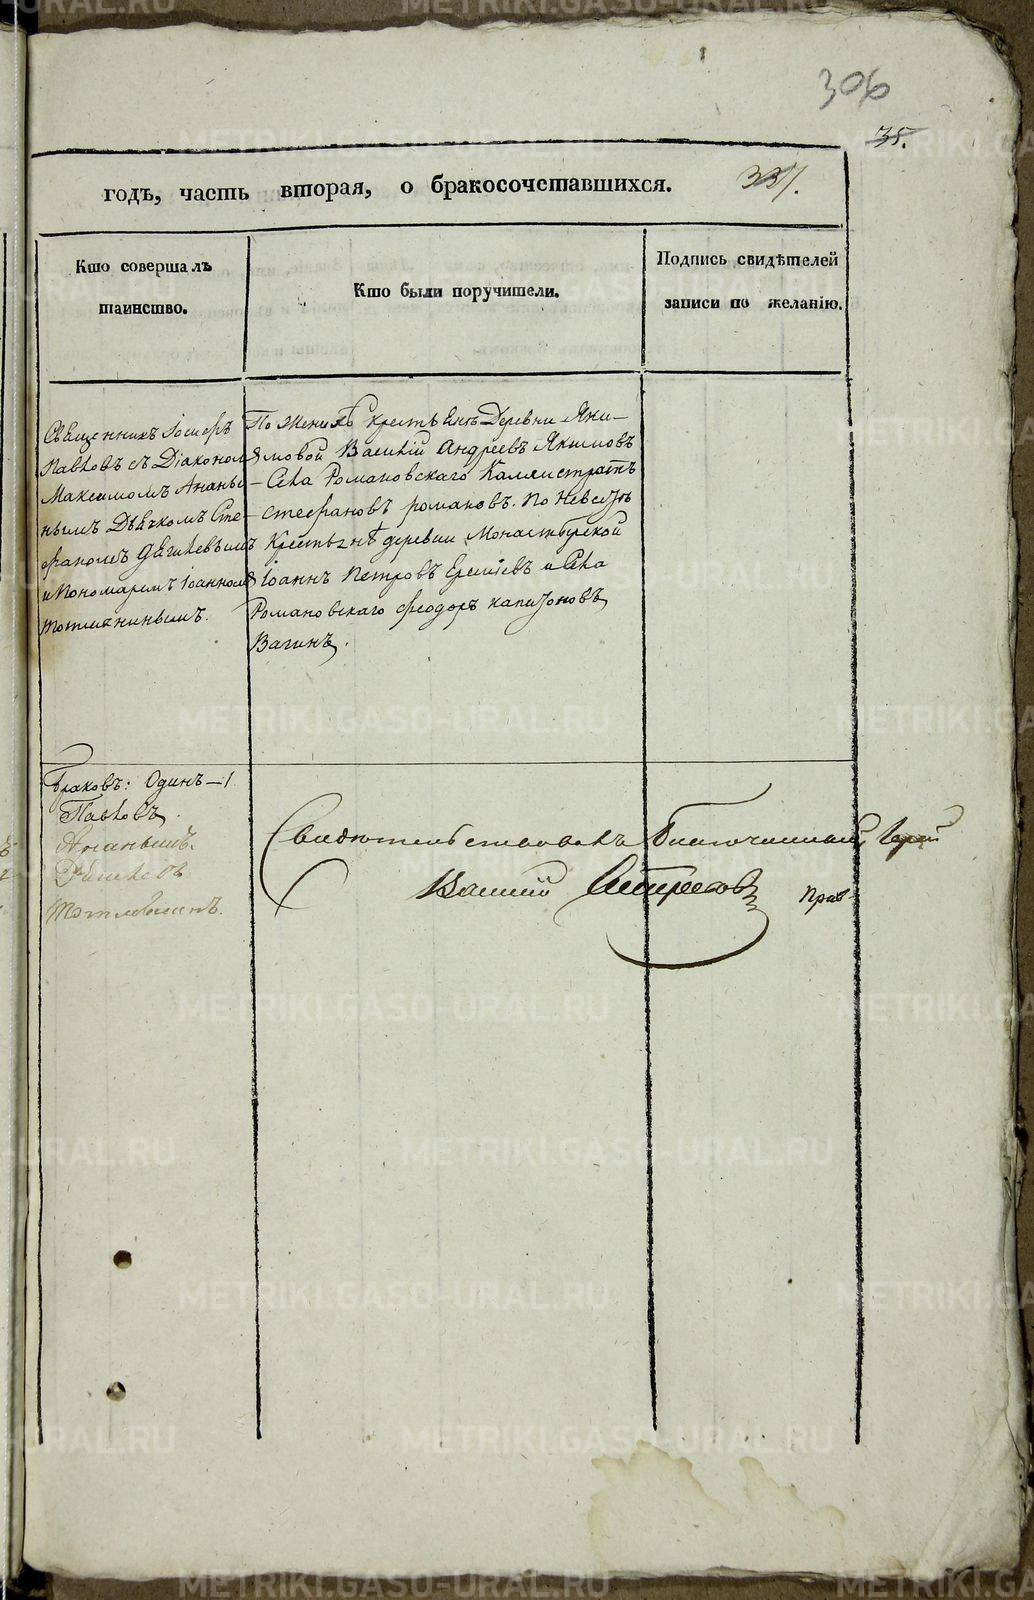 306
35.
годъ, часть вторая, о бракосочетавшихся. 337.
Кто совершалъ
таинство.
Кто были поручители.
Подпись свидѣтелей
записи по желанію.
Священникъ Іосифъ
Павловъ съ Діакономъ
Максимомъ Ананьи-
нымъ Дьячкомъ Сте-
фаномъ
и Пономаремъ Іоанномъ
По женихѣ крестьяне Деревни Яки-
мовой Василий Андреевъ Якимовъ
Села Романовскаго Каллистратъ
Стефановъ романовъ. По Невестѣ
Крестьянѣ деревни Монастырской
Іоаннъ Петровъ и Села
Романовскаго Феодоръ капитоновъ
Вагинъ.
Браковъ: Одинъ — 1
Павловъ.
Ананьинъ.
Свидѣтельствовалъ Благочинный, Іерей
Василий
METRIKI.GASO-URAL.RU